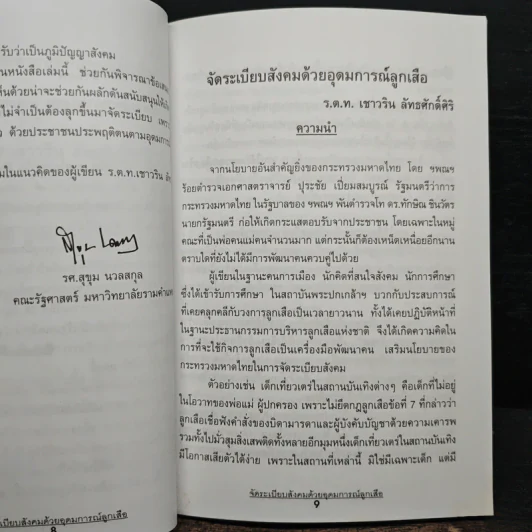 รับว่าเป็นภูมิปัญญาสังคม
นหนังสือเล่มนี้ ช่วยกันพิจารณาข้อเสน
ห็นด้วยน่าจะช่วยกันผลักดันสนับสนุนให้
ไม่จำเป็นต้องลุกขึ้นมาจัดระเบียบ เพรา
ว ด้วยประชาชนประพฤติตนตามอุดมการ
มในแนวคิดของผู้เขียน ร.ต.ท.เชาวริน
รศ.สุขุม นวลสกุล
คณะรัฐศาสตร์ มหาวิทยาลัยรามคำแห
ะเบียบสังคมด้วยอุดมการณ์ลูกเสือ
8
จัดระเบียบสังคมด้วยอุดมการณ์ลูกเสือ
ร.ต.ท. เชาวริน ลัทธศักดิ์ศิริ
ความนำ
จากนโยบายอันสำคัญยิ่งของกระทรวงมหาดไทย โดย ฯพณฯ
ร้อยตำรวจเอกศาสตราจารย์ ปุระชัย เปี่ยมสมบูรณ์ รัฐมนตรีว่าการ
กระทรวงมหาดไทย ในรัฐบาลของ ฯพณฯ พันตำรวจโท ดร.ทักษิณ ชินวัตร
นายกรัฐมนตรี ก่อให้เกิดกระแสตอบรับจากประชาชน โดยเฉพาะในหมู่
คณะที่เป็นพ่อคนแม่คนจำนวนมาก แต่กระนั้นก็ต้องเหน็ดเหนื่อยอีกนาน
ตราบใดที่ยังไม่ได้มีการพัฒนาคนควบคู่ไปด้วย
ผู้เขียนในฐานะคนการเมือง นักคิดที่สนใจสังคม นักการศึกษา
ซึ่งได้เข้ารับการศึกษา ในสถาบันพระปกเกล้าฯ บวกกับประสบการณ์
ที่เคยคลุกคลีกับวงการลูกเสือเป็นเวลายาวนาน ทั้งได้เคยปฏิบัติหน้าที่
ในฐานะประธานกรรมการบริหารลูกเสือแห่งชาติ จึงได้เกิดความคิดใน
การที่จะใช้กิจการลูกเสือเป็นเครื่องมือพัฒนาคน เสริมนโยบายของ
กระทรวงมหาดไทยในการจัดระเบียบสังคม
ตัวอย่างเช่น เด็กเที่ยวเตร่ในสถานบันเทิงต่างๆ คือเด็กที่ไม่อยู่
ในโอวาทของพ่อแม่ ผู้ปกครอง เพราะไม่ยึดกฎลูกเสือข้อที่ 7 ที่กล่าวว่า
ลูกเสือเชื่อฟังคำสั่งของบิดามารดาและผู้บังคับบัญชาด้วยความเคารพ
รวมทั้งไปมั่วสุมสิ่งเสพติดทั้งหลายอีกมุมหนึ่งเด็กเที่ยวเตร่ในสถานบันเทิง
มีโอกาสเสียตัวได้ง่าย เพราะในสถานที่เหล่านี้ มิใช่มีเฉพาะเด็ก แต่มี
จัดระเบียบสังคมด้วยอุดมการณ์ลูกเสือ
9